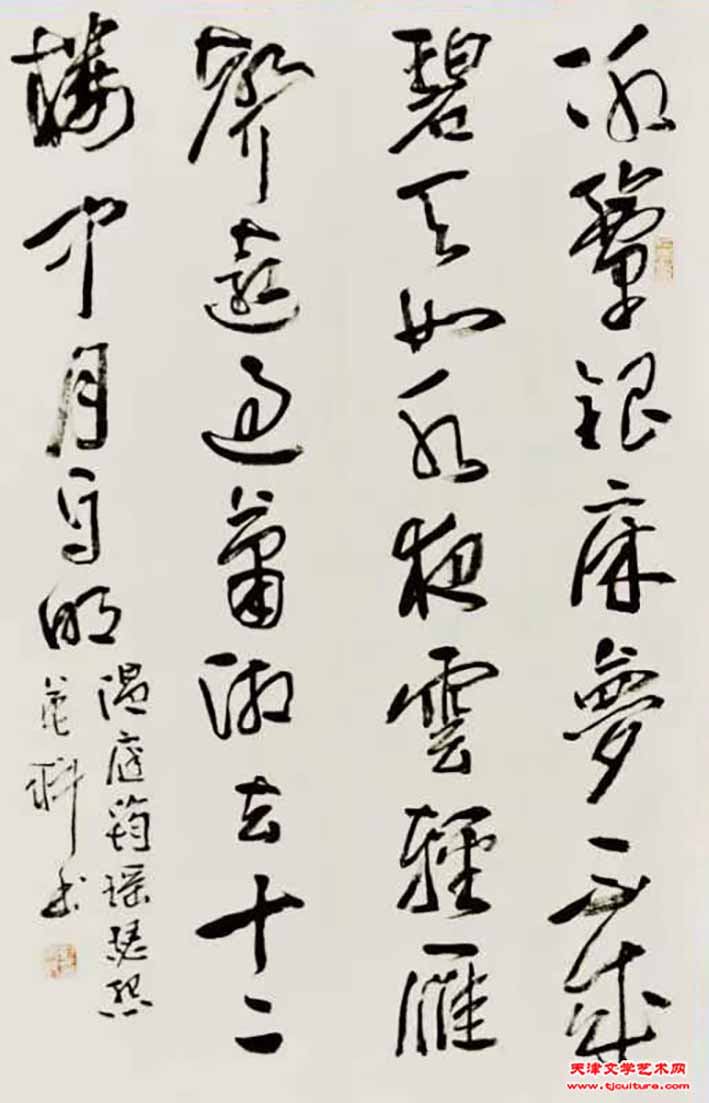 冰簟銀床夢不成
碧天如水夜雲輕雁
聲遠過蕭湘去十二
樓中月自明
温庭筠瑶瑟怨
科书
天津文学艺术网
www.tjculture.com